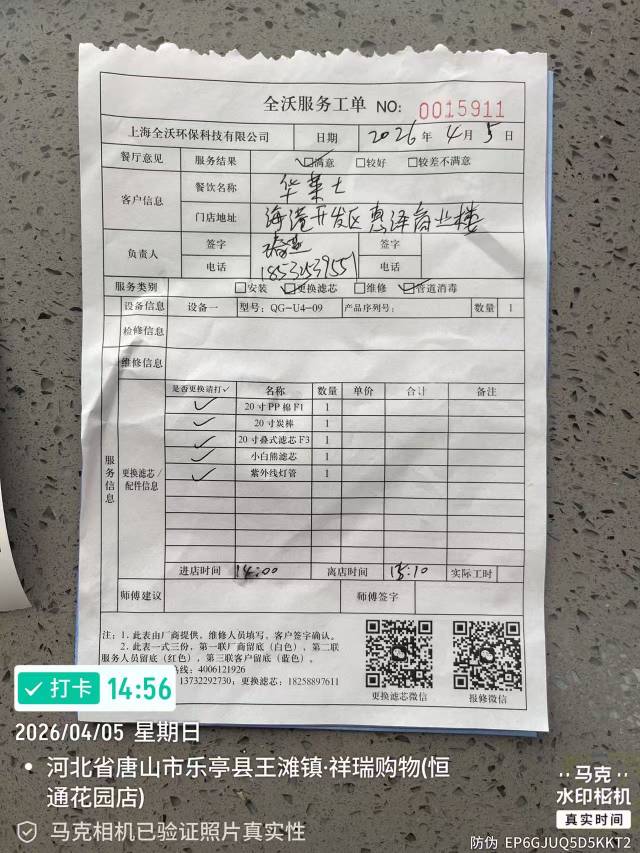 全沃服务工单 NO: 0015911
上海全沃环保科技有限公司 日期 2026年 4月 5日
餐厅意见 服务结果 ☑满意 □较好 □较差不满意
客户信息 餐饮名称 华莱士
门店地址 海港开发区惠泽商业楼
负责人 签字 签字
电话 18532539551 电话
服务类别 □安装 ☑更换滤芯 □维修 ☑管道消毒
设备信息 设备一 型号: QG-U4-09 产品序列号: 数量 1
检修信息
维修信息
服务信息
更换滤芯/配件信息
是否更换请打✓ 名称 数量 单价 合计 备注
✓ 20寸PP棉F1 1
✓ 20寸炭棒 1
✓ 20寸叠式滤芯F3 1
✓ 小白熊滤芯 1
✓ 紫外线灯管 1
进店时间 14:00 离店时间 15:10 实际工时
师傅建议 师傅签字
注: 1. 此表由厂商提供，维修人员填写，客户签字确认。
2. 此表一式三份，第一联厂商留底（白色），第二联
服务人员留底（红色），第三联客户留底（蓝色）。
热线: 4006121926
13732292730; 更换滤芯: 18258897611
更换滤芯微信 报修微信
打卡 14:56
2026/04/05 星期日
河北省唐山市乐亭县王滩镇·祥瑞购物(恒
通花园店)
马克相机已验证照片真实性
马克
水印相机
真实时间
防伪 EP6GJUQ5D5KKT2